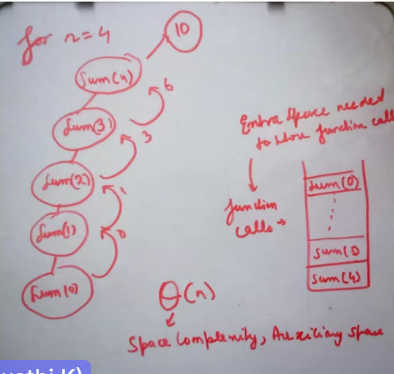 for n=4
10
Sum(4)
6
Sum(3)
3
Sum(2)
1
Sum(1)
0
Sum(0)
Extra Space needed
to store function call
function
calls →
Sum(0)
Sum(4)
θ(n)
Space Complexity, Auxiliary Space